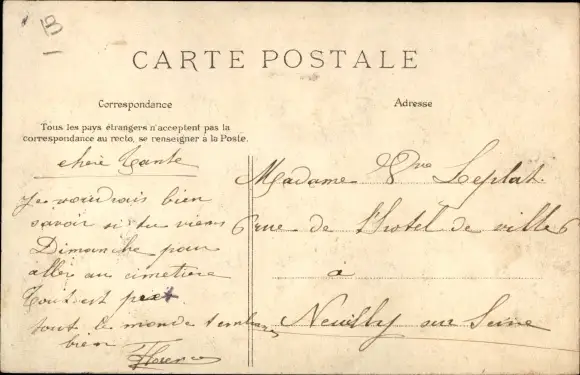 CARTE POSTALE
Correspondance
Adresse
Tous les pays étrangers n'acceptent pas la
correspondance au recto, se renseigner à la Poste.
chère Tante
Je voudrais bien
savoir si tu viens
Dimanche pour
aller au cimetière
Tout est pret
tout le monde t embrasse
bien
Florence
Madame Vve Leplat.
6 rue de l'hotel de ville 6
à
Neuilly sur Seine